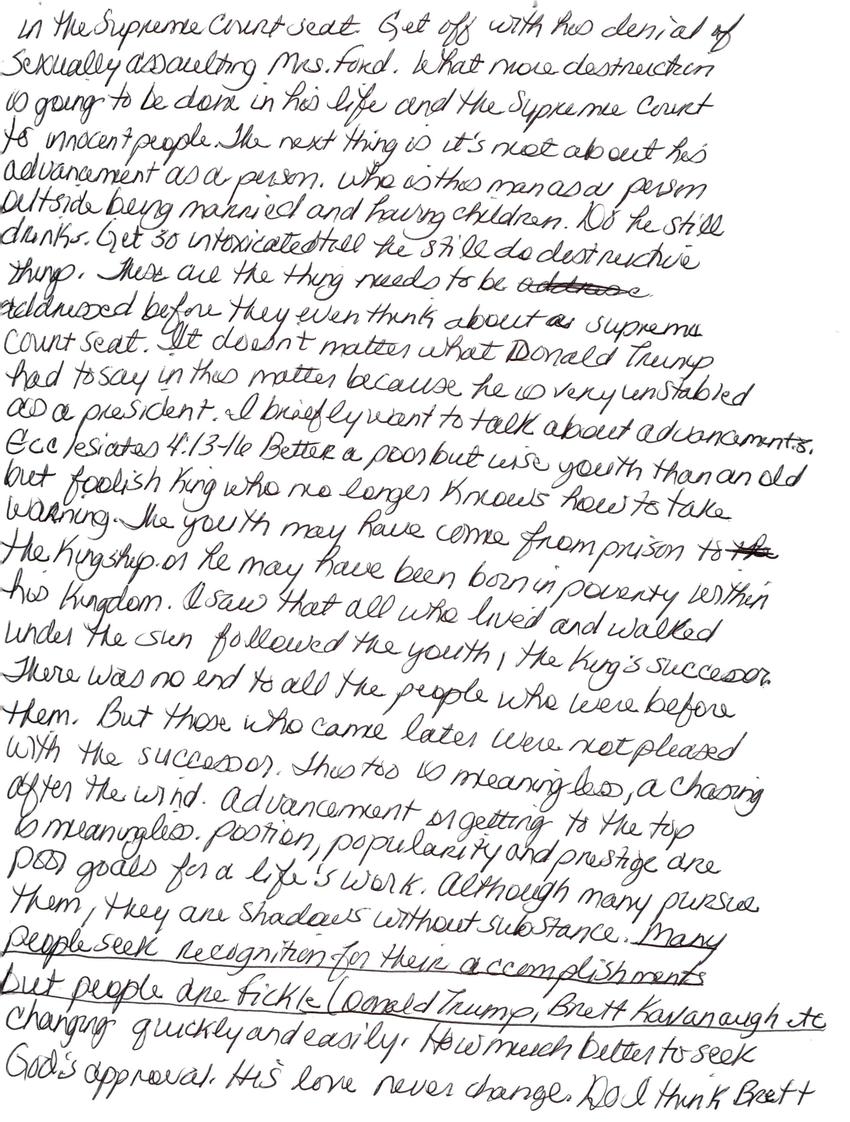 in the Supreme Court seat. Get off with his denial of
sexually assaulting Mrs. Ford. What more destruction
is going to be done in his life and the Supreme Court
to innocent people. The next thing is it's not about his
advancement as a person. Who is this man as a person
outside being married and having children. Do he still
drinks. Get so intoxicated till he still do destructive
things. These are the thing needs to be address
addressed before they even think about a supreme
Court seat. It doesn't matter what Donald Trump
had to say in this matter because he is very unstabled
as a president. I briefly want to talk about advancements.
Ecclesiates 4:13-16 Better a poor but wise youth than an old
but foolish King who no longer knows how to take
warning. The youth may have come from prison to the
the Kingship or he may have been born in poverty within
his Kingdom. I saw that all who lived and walked
under the sun followed the youth, the King's successor.
There was no end to all the people who were before
them. But those who came later were not pleased
with the successor. This too is meaningless, a chasing
after the wind. Advancement or getting to the top
is meaningless. Postion, popularity and prestige are
poor goals for a life's work. Although many pursue
them, they are shadows without substance. Many
people seek recognition for their accomplishments
but people are fickle (Donald Trump, Brett Kavanaugh etc
changing quickly and easily. How much better to seek
God's approval. His love never change. Do I think Brett